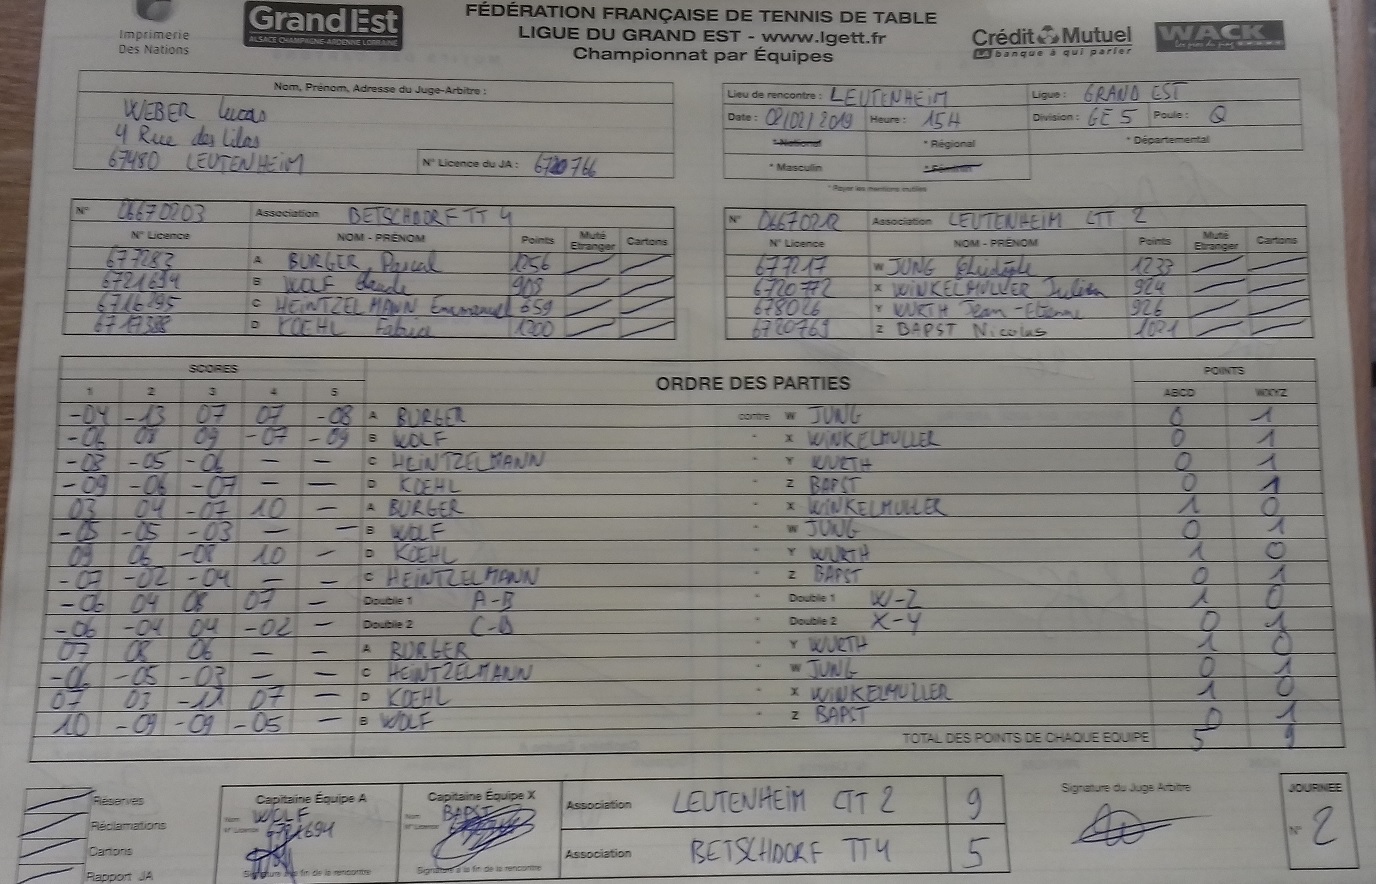 Imprimerie
Des Nations
GrandEst
ALSACE CHAMPAGNE-ARDENNE LORRAINE
FÉDÉRATION FRANÇAISE DE TENNIS DE TABLE
LIGUE DU GRAND EST - www.lgett.fr
Championnat par Équipes
Crédit Mutuel
LA banque à qui parler
WACK
Nom, Prénom, Adresse du Juge-Arbitre :
WEBER Lucas
4 Rue des Lilas
67480 LEUTENHEIM
N° Licence du JA : 6720766
Lieu de rencontre : LEUTENHEIM Ligue : GRAND EST
Date : 02/02/2019 Heure : 15H Division : GE 5 Poule : Q
* National * Régional * Départemental
* Masculin * Féminin
* Rayer les mentions inutiles
N° 06670203 Association BETSCHDORF TT 4
N° Licence NOM - PRÉNOM Points Muté Etranger Cartons
677283 A BURGER Pascal 1256
6721694 B WOLF Claude 908
6716295 C HEINTZELMANN Emmanuel 659
6717388 D KOEHL Fabien 1200
N° 06670212 Association LEUTENHEIM CTT 2
N° Licence NOM - PRÉNOM Points Muté Etranger Cartons
677217 W JUNG Christophe 1233
6720772 X WINKELMULLER Julien 924
678026 Y WURTH Jean-Etienne 926
6720769 Z BAPST Nicolas 1021
SCORES ORDRE DES PARTIES POINTS
1 2 3 4 5 ABCD WXYZ
-04 -13 07 07 -08 A BURGER contre W JUNG 0 1
-06 08 09 -07 -09 B WOLF - X WINKELMULLER 0 1
-08 -05 -06 — — C HEINTZELMANN - Y WURTH 0 1
-09 -06 -07 — — D KOEHL - Z BAPST 0 1
03 04 -07 10 — A BURGER - X WINKELMULLER 1 0
-05 -05 -03 — — B WOLF - W JUNG 0 1
09 06 -08 10 — D KOEHL - Y WURTH 1 0
-07 -02 -04 — — C HEINTZELMANN - Z BAPST 0 1
-06 04 08 07 — Double 1 A-B - Double 1 W-Z 1 0
-06 -04 04 -02 — Double 2 C-D - Double 2 X-Y 0 1
07 08 06 — — A BURGER - Y WURTH 1 0
-06 -05 -03 — — C HEINTZELMANN - W JUNG 0 1
07 03 -11 07 — D KOEHL - X WINKELMULLER 1 0
10 -09 -09 -05 — B WOLF - Z BAPST 0 1
TOTAL DES POINTS DE CHAQUE EQUIPE 5 9
Réserves
Réclamations
Cartons
Rapport JA
Capitaine Équipe A
Nom WOLF
N° Licence 6721694
Signature à la fin de la rencontre
Capitaine Équipe X
Nom BAPST
N° Licence
Signature à la fin de la rencontre
Association LEUTENHEIM CTT 2 9
Association BETSCHDORF TT4 5
Signature du Juge Arbitre
JOURNEE
N° 2